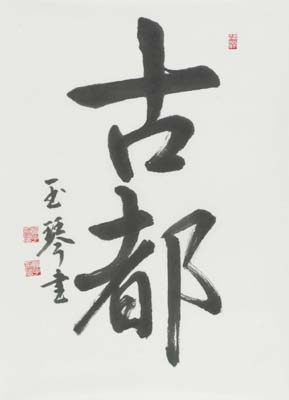 古都
玉琴書